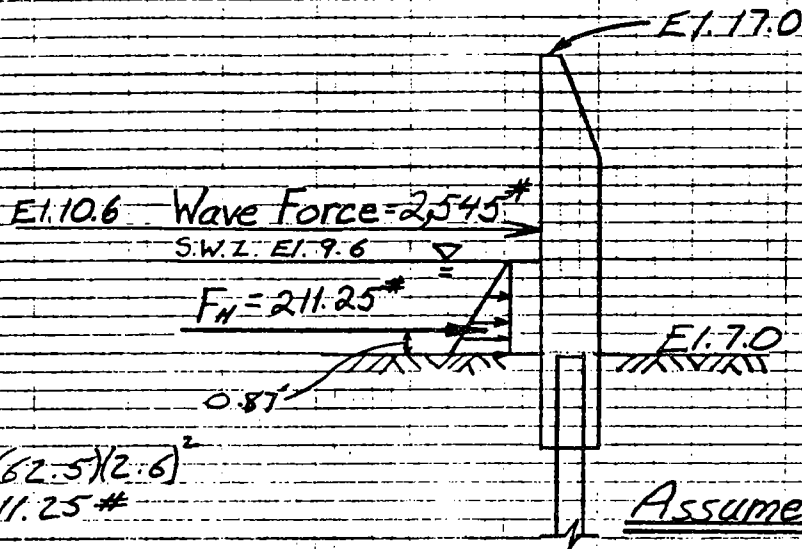 El. 17.0
El. 10.6 Wave Force = 2,545#
S.W.L. El. 9.6
F_H = 211.25#
El. 7.0
0.87'
(62.5)(2.6)²
11.25 #
Assume